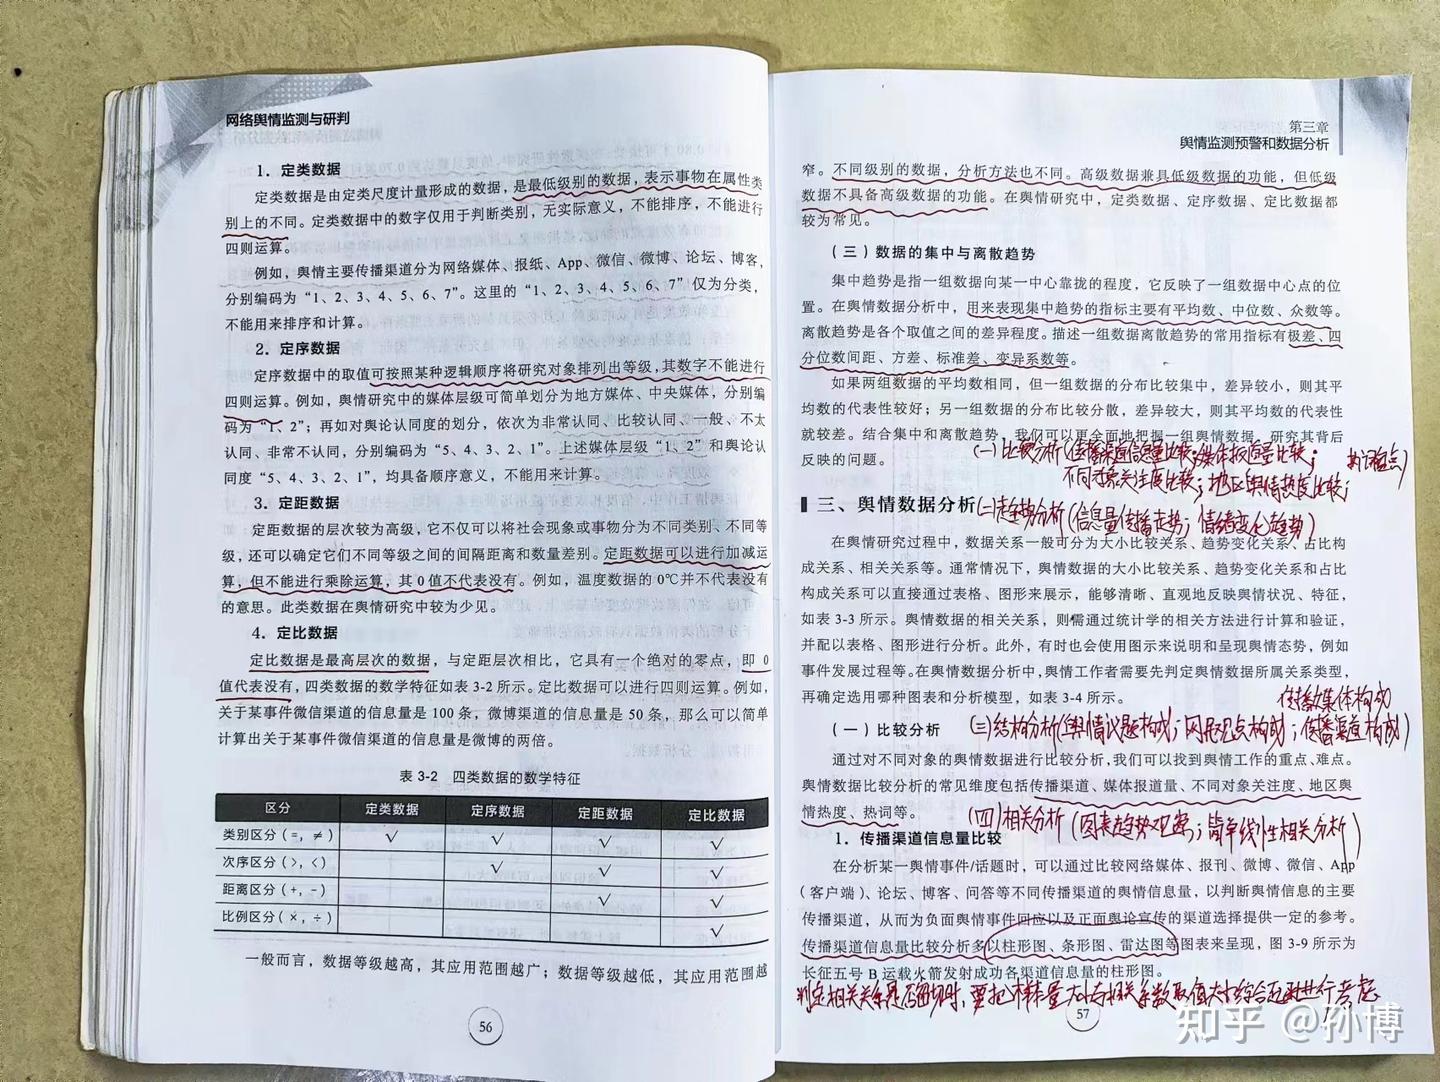 网络舆情监测与研判
1．定类数据
定类数据是由定类尺度计量形成的数据，是最低级别的数据，表示事物在属性类
别上的不同。定类数据中的数字仅用于判断类别，无实际意义，不能排序，不能进行
四则运算。
例如，舆情主要传播渠道分为网络媒体、报纸、App、微信、微博、论坛、博客，
分别编码为“1、2、3、4、5、6、7”。这里的“1、2、3、4、5、6、7”仅为分类，
不能用来排序和计算。
2．定序数据
定序数据中的取值可按照某种逻辑顺序将研究对象排列出等级，其数字不能进行
四则运算。例如，舆情研究中的媒体层级可简单划分为地方媒体、中央媒体，分别编
码为“1、2”；再如对舆论认同度的划分，依次为非常认同、比较认同、一般、不太
认同、非常不认同，分别编码为“5、4、3、2、1”。上述媒体层级“1、2”和舆论认
同度“5、4、3、2、1”，均具备顺序意义，不能用来计算。
3．定距数据
定距数据的层次较为高级，它不仅可以将社会现象或事物分为不同类别、不同等
级，还可以确定它们不同等级之间的间隔距离和数量差别。定距数据可以进行加减运
算，但不能进行乘除运算，其 0 值不代表没有。例如，温度数据的 0℃并不代表没有
的意思。此类数据在舆情研究中较为少见。
4．定比数据
定比数据是最高层次的数据，与定距层次相比，它具有一个绝对的零点，即 0
值代表没有，四类数据的数学特征如表 3-2 所示。定比数据可以进行四则运算。例如，
关于某事件微信渠道的信息量是 100 条，微博渠道的信息量是 50 条，那么可以简单
计算出关于某事件微信渠道的信息量是微博的两倍。
表 3-2 四类数据的数学特征
区分 定类数据 定序数据 定距数据 定比数据
类别区分（=，≠） √ √ √ √
次序区分（>，<） √ √ √
距离区分（+，-） √ √
比例区分（×，÷） √
一般而言，数据等级越高，其应用范围越广；数据等级越低，其应用范围越
56
第三章
舆情监测预警和数据分析
窄。不同级别的数据，分析方法也不同。高级数据兼具低级数据的功能，但低级
数据不具备高级数据的功能。在舆情研究中，定类数据、定序数据、定比数据都
较为常见。
（三）数据的集中与离散趋势
集中趋势是指一组数据向某一中心靠拢的程度，它反映了一组数据中心点的位
置。在舆情数据分析中，用来表现集中趋势的指标主要有平均数、中位数、众数等。
离散趋势是各个取值之间的差异程度。描述一组数据离散趋势的常用指标有极差、四
分位数间距、方差、标准差、变异系数等。
如果两组数据的平均数相同，但一组数据的分布比较集中，差异较小，则其平
均数的代表性较好；另一组数据的分布比较分散，差异较大，则其平均数的代表性
就较差。结合集中和离散趋势，我们可以更全面地把握一组舆情数据，研究其背后
反映的问题。
(一)比较分析(传播渠道信息量比较；媒体报道量比较；
不同对象关注度比较；地区舆情热度比较；
三、舆情数据分析
(二)趋势分析(信息量传播走势；情绪变化趋势)
在舆情研究过程中，数据关系一般可分为大小比较关系、趋势变化关系、占比构
成关系、相关关系等。通常情况下，舆情数据的大小比较关系、趋势变化关系和占比
构成关系可以直接通过表格、图形来展示，能够清晰、直观地反映舆情状况、特征，
如表 3-3 所示。舆情数据的相关关系，则需通过统计学的相关方法进行计算和验证，
并配以表格、图形进行分析。此外，有时也会使用图示来说明和呈现舆情态势，例如
事件发展过程等。在舆情数据分析中，舆情工作者需要先判定舆情数据所属关系类型，
再确定选用哪种图表和分析模型，如表 3-4 所示。
传播媒体构成
（一）比较分析
(三)结构分析(舆情议题构成；网民观点构成；传播渠道构成)
通过对不同对象的舆情数据进行比较分析，我们可以找到舆情工作的重点、难点。
舆情数据比较分析的常见维度包括传播渠道、媒体报道量、不同对象关注度、地区舆
情热度、热词等。
(四)相关分析(因素趋势观察；简单线性相关分析)
1．传播渠道信息量比较
在分析某一舆情事件/话题时，可以通过比较网络媒体、报刊、微博、微信、App
（客户端）、论坛、博客、问答等不同传播渠道的舆情信息量，以判断舆情信息的主要
传播渠道，从而为负面舆情事件回应以及正面舆论宣传的渠道选择提供一定的参考。
传播渠道信息量比较分析多以柱形图、条形图、雷达图等图表来呈现，图 3-9 所示为
长征五号 B 运载火箭发射成功各渠道信息量的柱形图。
判定相关关系是否密切时，要把样本量大小与相关系数取值大小综合起来进行考虑
57
知乎 @孙博